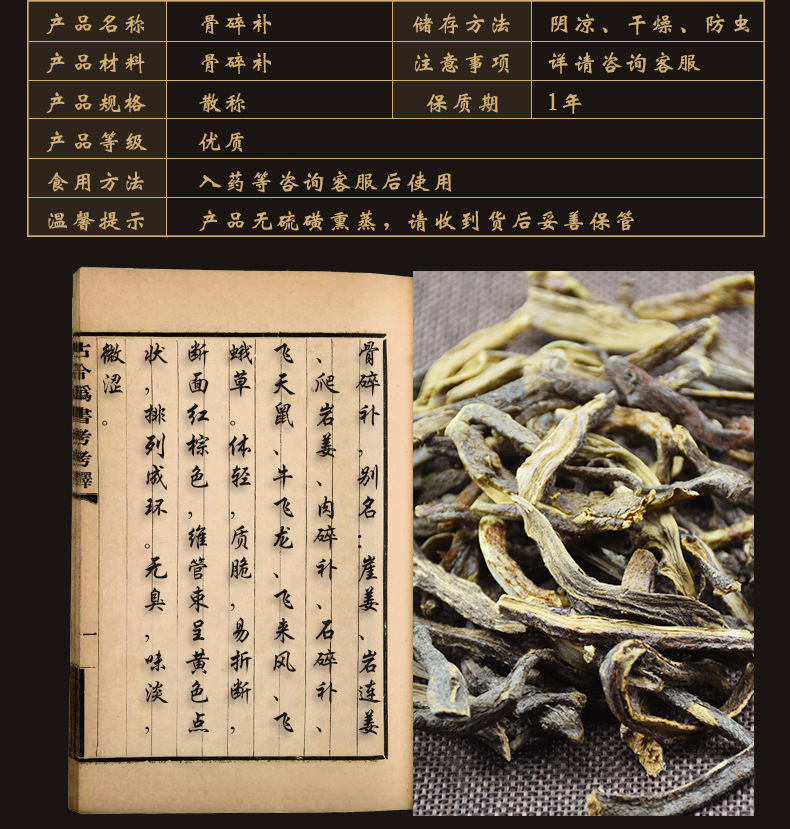 产品名称 骨碎补 储存方法 阴凉、干燥、防虫
产品材料 骨碎补 注意事项 详请咨询客服
产品规格 散称 保质期 1年
产品等级 优质
食用方法 入药等咨询客服后使用
温馨提示 产品无硫磺熏蒸，请收到货后妥善保管
骨碎补，别名：崖姜、岩连姜
、爬岩姜、肉碎补、石碎补、
飞天鼠、牛飞龙、飞来风、飞
蛾草。体轻，质脆，易折断，
断面红棕色，维管束呈黄色点
状，排列成环。无臭，味淡，
微涩。
書考考釋
一